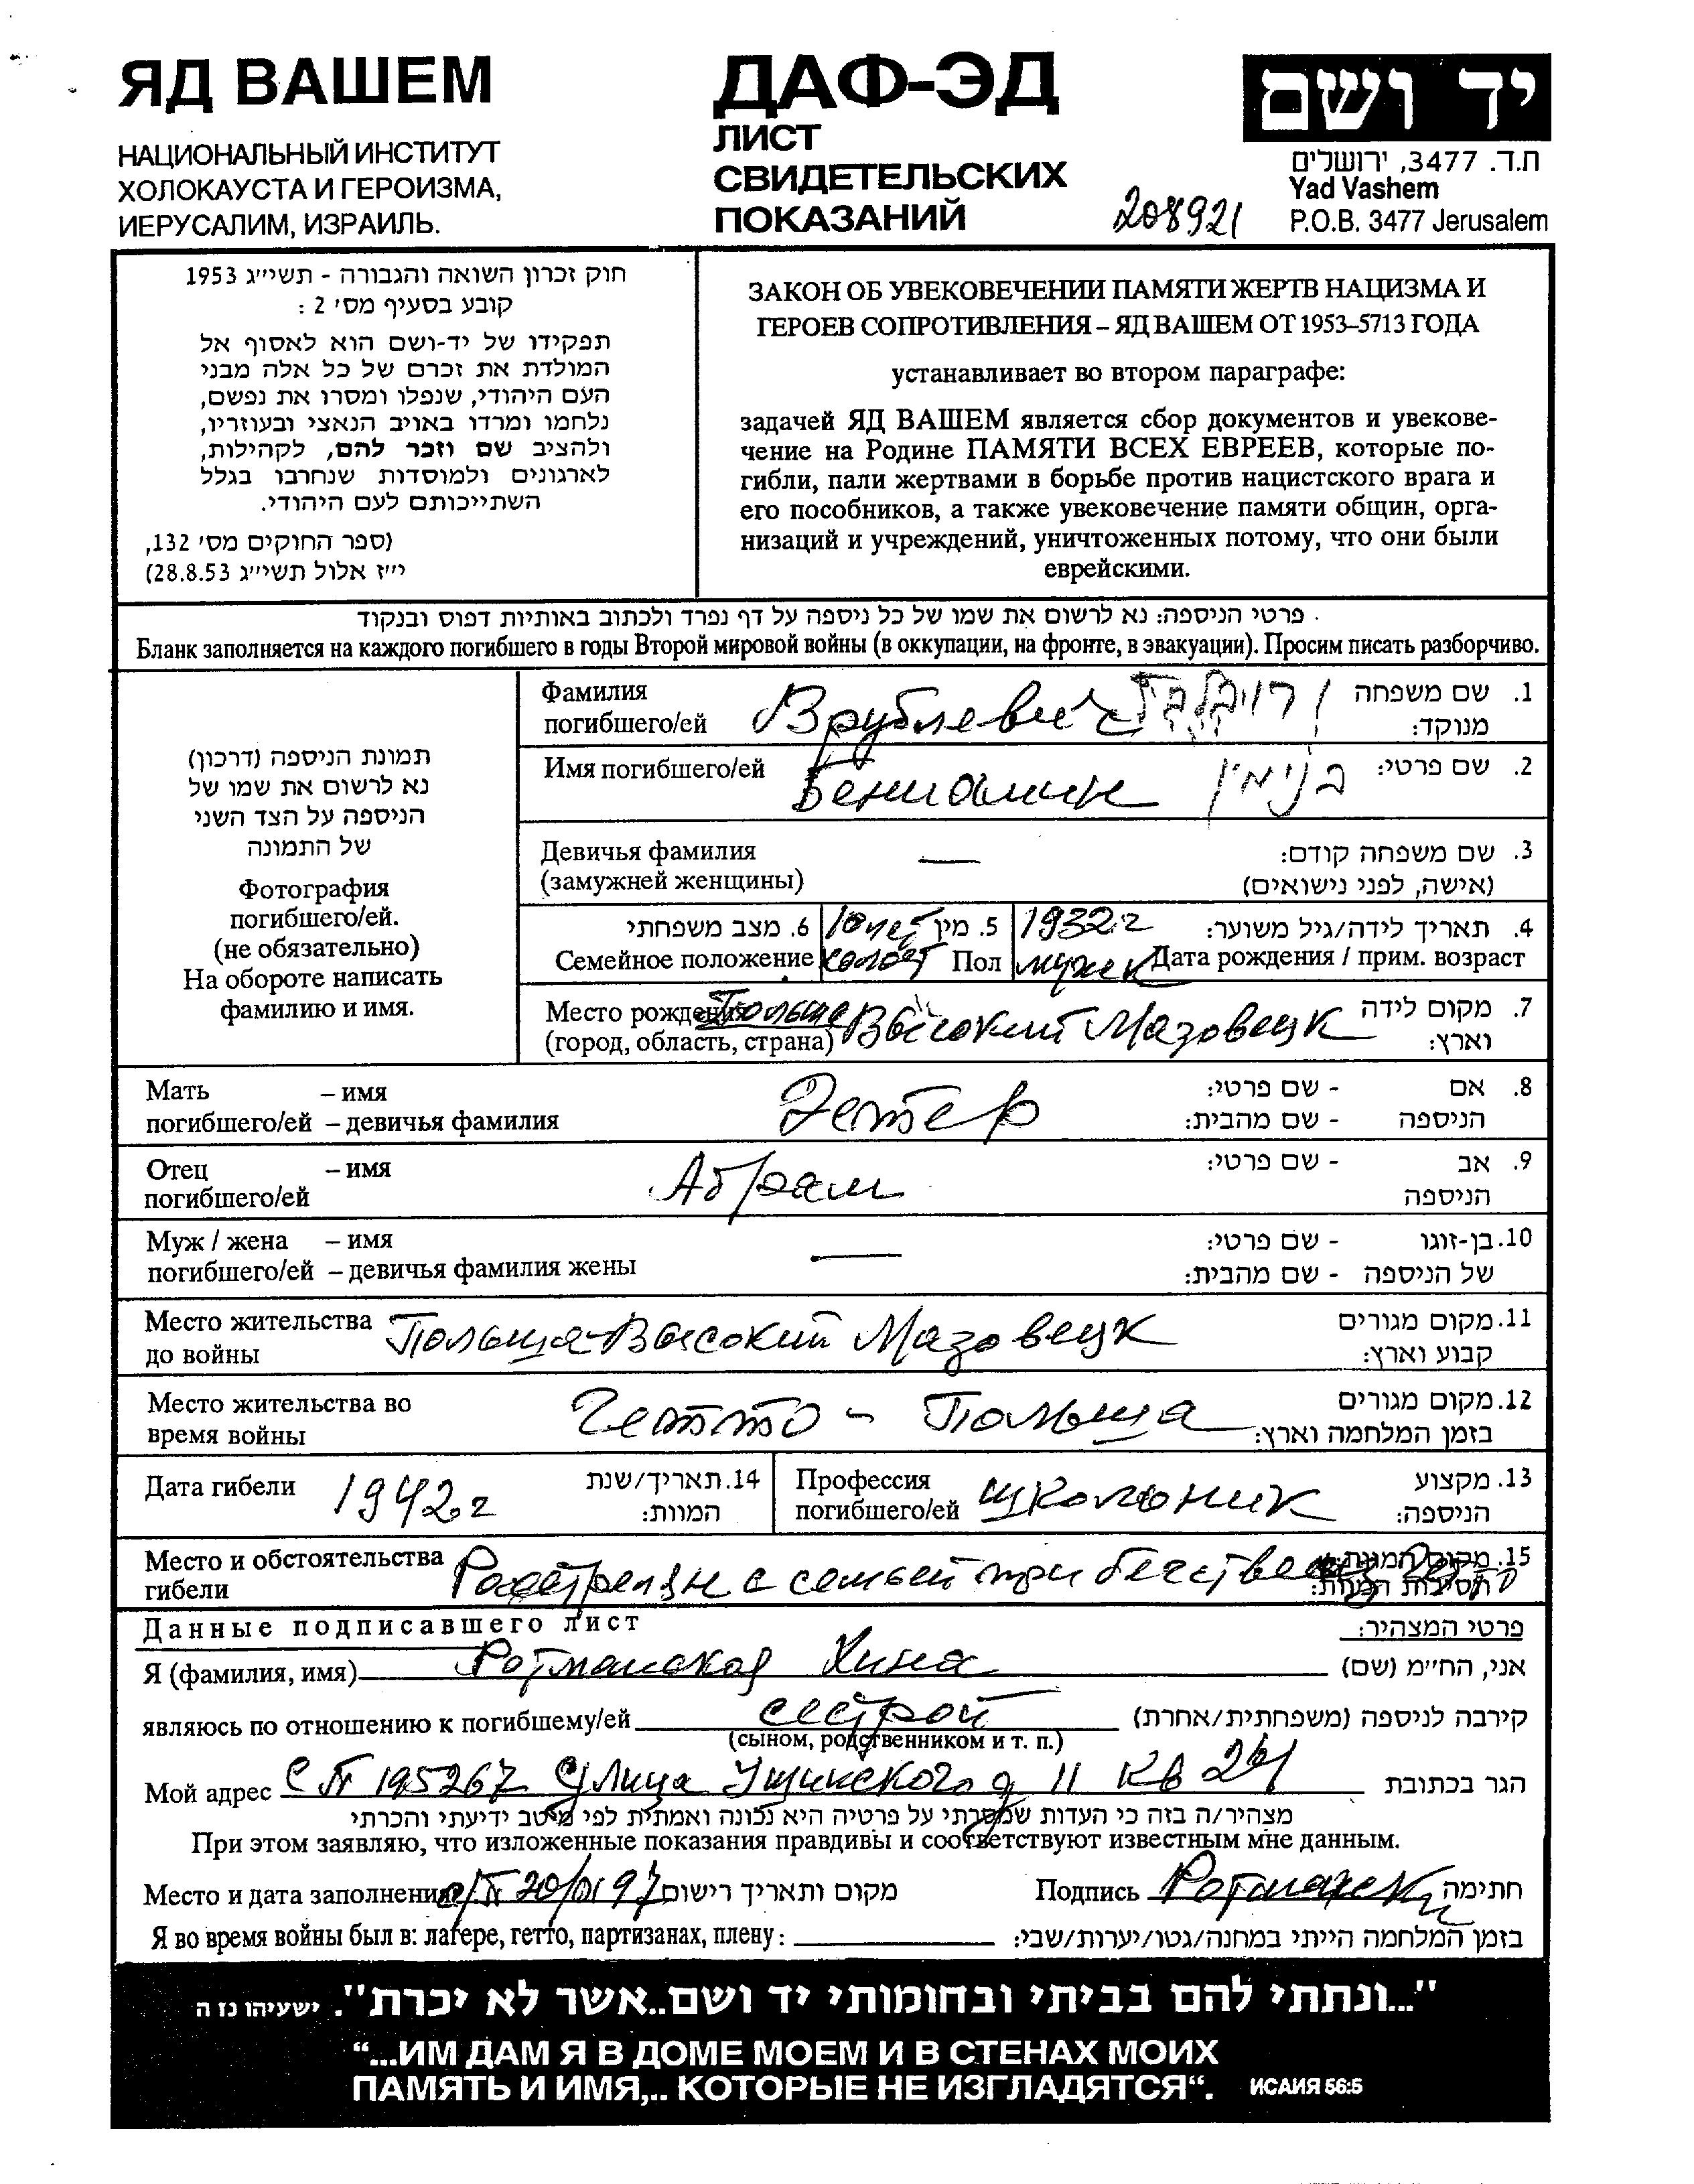 ЯД ВАШЕМ
НАЦИОНАЛЬНЫЙ ИНСТИТУТ
ХОЛОКАУСТА И ГЕРОИЗМА,
ИЕРУСАЛИМ, ИЗРАИЛЬ.
ДАФ-ЭД
ЛИСТ
СВИДЕТЕЛЬСКИХ
ПОКАЗАНИЙ
208921
יד ושם
ת.ד. 3477, ירושלים
Yad Vashem
P.O.B. 3477 Jerusalem
חוק זכרון השואה והגבורה - תשי״ג 1953
קובע בסעיף מס׳ 2 :
תפקידו של יד-ושם הוא לאסוף אל
המולדת את זכרם של כל אלה מבני
העם היהודי, שנפלו ומסרו את נפשם,
נלחמו ומרדו באויב הנאצי ובעוזריו,
ולהציב שם וזכר להם, לקהילות,
לארגונים ולמוסדות שנחרבו בגלל
השתייכותם לעם היהודי.
(ספר החוקים מס׳ 132,
י״ז אלול תשי״ג 28.8.53)
ЗАКОН ОБ УВЕКОВЕЧЕНИИ ПАМЯТИ ЖЕРТВ НАЦИЗМА И
ГЕРОЕВ СОПРОТИВЛЕНИЯ – ЯД ВАШЕМ ОТ 1953–5713 ГОДА
устанавливает во втором параграфе:
задачей ЯД ВАШЕМ является сбор документов и увекове-
чение на Родине ПАМЯТИ ВСЕХ ЕВРЕЕВ, которые по-
гибли, пали жертвами в борьбе против нацистского врага и
его пособников, а также увековечение памяти общин, орга-
низаций и учреждений, уничтоженных потому, что они были
еврейскими.
פרטי הניספה: נא לרשום את שמו של כל ניספה על דף נפרד ולכתוב באותיות דפוס ובנקוד
Бланк заполняется на каждого погибшего в годы Второй мировой войны (в оккупации, на фронте, в эвакуации). Просим писать разборчиво.
תמונת הניספה (דרכון)
נא לרשום את שמו של
הניספה על הצד השני
של התמונה
Фотография
погибшего/ей.
(не обязательно)
На обороте написать
фамилию и имя.
Фамилия Врублевич 1. שם משפחה
погибшего/ей מנוקד:
Имя погибшего/ей Бениамин בנימין 2. שם פרטי:
Девичья фамилия — 3. שם משפחה קודם:
(замужней женщины) (אישה, לפני נישואים)
6. מצב משפחתי 10 лет 5. מין 1932 г 4. תאריך לידה/גיל משוער:
Семейное положение холост Пол мужск Дата рождения / прим. возраст
Место рождения Польша Высокий Мазовецк 7. מקום לידה
(город, область, страна) וארץ:
Мать – имя Эстер - שם פרטי: 8. אם
погибшего/ей – девичья фамилия - שם מהבית: הניספה
Отец – имя Абрам - שם פרטי: 9. אב
погибшего/ей הניספה
Муж / жена – имя — - שם פרטי: 10. בן-זוגו
погибшего/ей – девичья фамилия жены - שם מהבית: של הניספה
Место жительства Польша-Высокий Мазовецк 11. מקום מגורים
до войны קבוע וארץ:
Место жительства во Гетто - Польша 12. מקום מגורים
время войны בזמן המלחמה וארץ:
Дата гибели 1942 г 14. תאריך/שנת המוות:
Профессия погибшего/ей школьник 13. מקצוע הניספה:
Место и обстоятельства Расстрелян с семьей при бегстве из гетто 15. מקום המוות
гибели נסיבות המוות:
Данные подписавшего лист פרטי המצהיר:
Я (фамилия, имя) Ротманская Хина אני, הח״מ (שם)
являюсь по отношению к погибшему/ей сестрой קירבה לניספה (משפחתית/אחרת)
(сыном, родственником и т. п.)
Мой адрес С П 195267 Улица Ушинского д 11 кв 241 הגר בכתובת
מצהיר/ה בזה כי העדות שמסרתי על פרטיה היא נכונה ואמתית לפי מיטב ידיעתי והכרתי
При этом заявляю, что изложенные показания правдивы и соответствуют известным мне данным.
Место и дата заполнения מקום ותאריך רישום Подпись חתימה
Я во время войны был в: лагере, гетто, партизанах, плену: בזמן המלחמה הייתי במחנה/גטו/יערות/שבי:
"...ונתתי להם בביתי ובחומותי יד ושם..אשר לא יכרת". ישעיהו נז ה
“...ИМ ДАМ Я В ДОМЕ МОЕМ И В СТЕНАХ МОИХ
ПАМЯТЬ И ИМЯ,.. КОТОРЫЕ НЕ ИЗГЛАДЯТСЯ“. ИСАИЯ 56:5